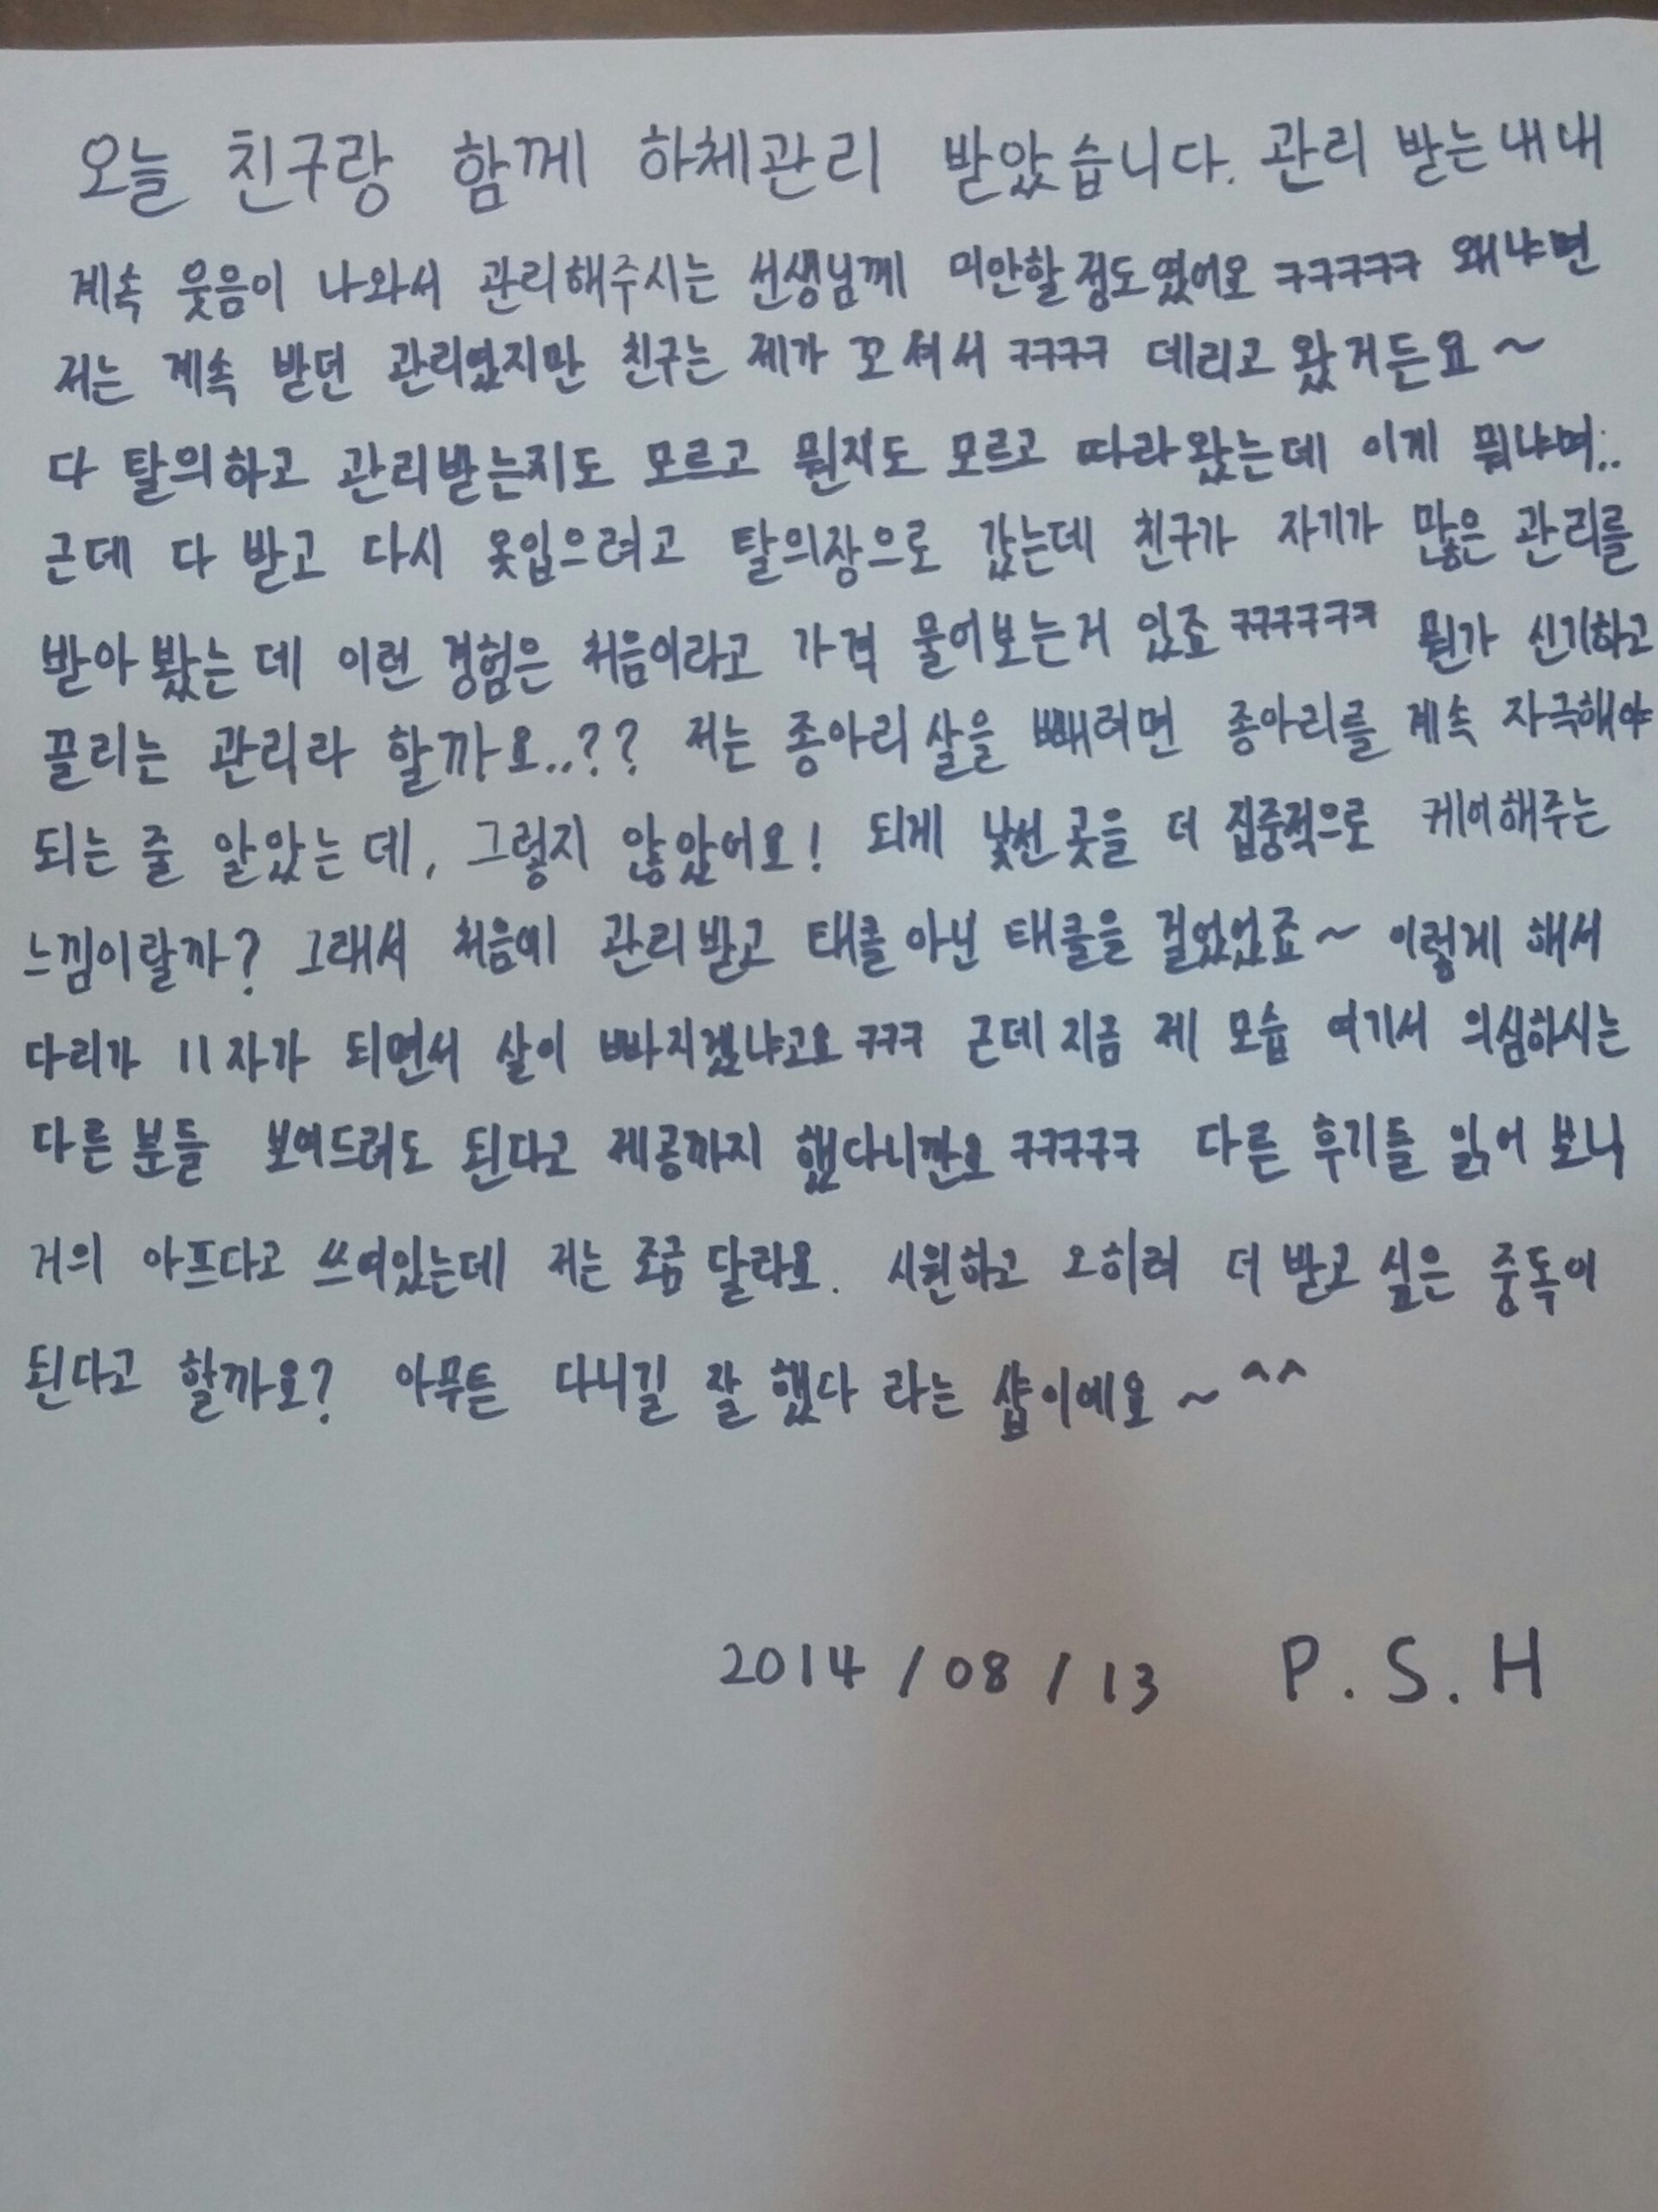 오늘 친구랑 함께 하체관리 받았습니다. 관리 받는내내
계속 웃음이 나와서 관리해주시는 선생님께 미안할정도였어요 ㅋㅋㅋㅋㅋ 왜냐면
저는 계속 받던 관리였지만 친구는 제가 꼬셔서 ㅋㅋㅋㅋ 데리고 왔거든요~
다 탈의하고 관리받는지도 모르고 뭔지도 모르고 따라왔는데 이게 뭐냐며..
근데 다 받고 다시 옷입으려고 탈의장으로 갔는데 친구가 자기가 많은 관리를
받아봤는데 이런 경험은 처음이라고 가격 물어보는거 있죠 ㅋㅋㅋㅋㅋㅋ 뭔가 신기하고
끌리는 관리라 할까요..?? 저는 종아리살을 빼려면 종아리를 계속 자극해야
되는 줄 알았는데, 그렇지 않았어요! 되게 낯선곳을 더 집중적으로 케어해주는
느낌이랄까? 그래서 처음에 관리받고 태클아닌 태클을 걸었었죠~ 이렇게 해서
다리가 11자가 되면서 살이 빠지겠냐고요 ㅋㅋㅋ 근데 지금 제 모습 여기서 의심하시는
다른 분들 보여드려도 된다고 제공까지 했다니깐요 ㅋㅋㅋㅋㅋ 다른 후기들 읽어 보니
거의 아프다고 쓰여있는데 저는 조금 달라요. 시원하고 오히려 더 받고 싶은 중독이
된다고 할까요? 아무튼 다니길 잘 했다 라는 샵이에요~^^
2014/08/13 P.S.H